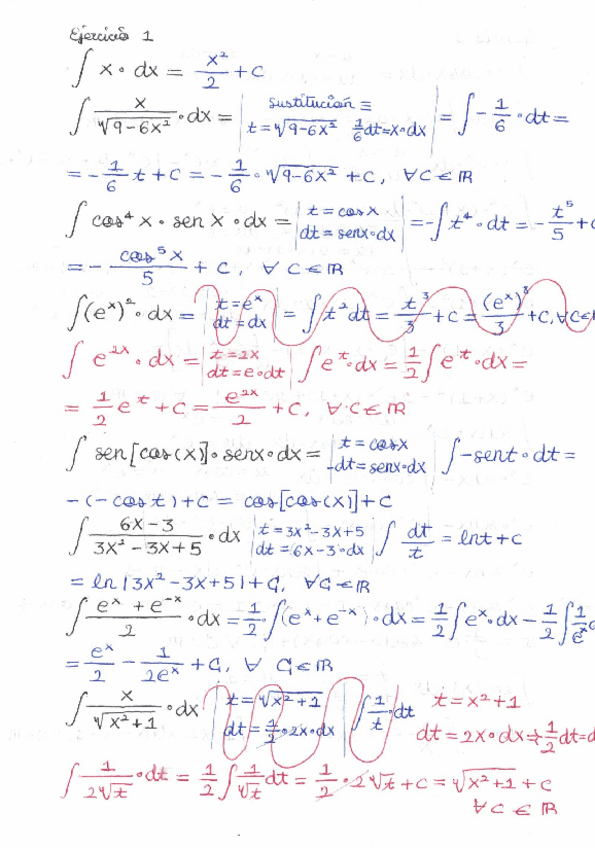 Ejercicio 1
∫ x · dx = x²/2 + C
∫ x/√(9-6x²) · dx = | sustitución ≡ t = √(9-6x²) 1/6 dt = x·dx | = ∫ - 1/6 · dt =
= - 1/6 t + C = - 1/6 · √(9-6x²) + C, ∀ C ∈ ℝ
∫ cos⁴ x · sen x · dx = | t = cos x dt = senx·dx | = -∫ t⁴ · dt = - t⁵/5 + C
= - cos⁵x/5 + C, ∀ C ∈ ℝ
∫ (eˣ)² · dx = | t = eˣ dt = dx | = ∫ t² dt = t³/3 + C = (eˣ)³/3 + C, ∀C∈
∫ e²ˣ · dx = | t = 2x dt = e·dt | ∫ eᵗ·dx = 1/2 ∫ eᵗ · dx =
= 1/2 eᵗ + C = e²ˣ/2 + C, ∀ C ∈ ℝ
∫ sen[cos(x)]·senx·dx = | t = cosx -dt = senx·dx | ∫ -sent · dt =
-(-cost) + C = cos[cos(x)] + C
∫ (6x-3)/(3x²-3x+5) · dx | t = 3x²-3x+5 dt = 6x-3·dx | ∫ dt/t = lnt + C
= ln|3x²-3x+5| + C, ∀C∈ℝ
∫ (eˣ + e⁻ˣ)/2 · dx = 1/2 · ∫(eˣ+e⁻ˣ)·dx = 1/2 ∫ eˣ·dx - 1/2 ∫ 1/eˣ
= eˣ/2 - 1/(2eˣ) + C, ∀ C ∈ ℝ
∫ x/√(x²+1) · dx | t = √(x²+1) dt = 1/2 · 2x·dx | ∫ 1/t · dt t = x²+1
dt = 2x·dx → 1/2 dt =
∫ 1/(2√t) · dt = 1/2 ∫ 1/√t dt = 1/2 · 2√t + C = √(x²+1) + C
∀ C ∈ ℝ